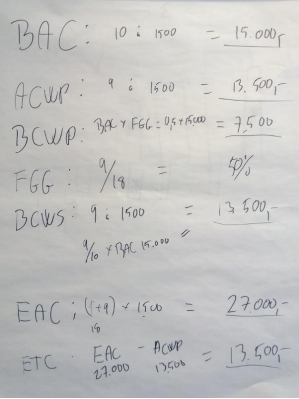 BAC: 10 á 1500 = 15.000,-
ACWP: 9 á 1500 = 13.500,-
BCWP: BAC x FGG = 0,5 x 15.000 = 7,500
FGG: 9/18 = 50%
BCWS: 9 á 1500 = 13,500,-
9/10 x BAC 15.000 =
EAC: (9+9) x 1500 = 27.000,-
18
ETC EAC - ACWP = 13.500,-
27.000 13500